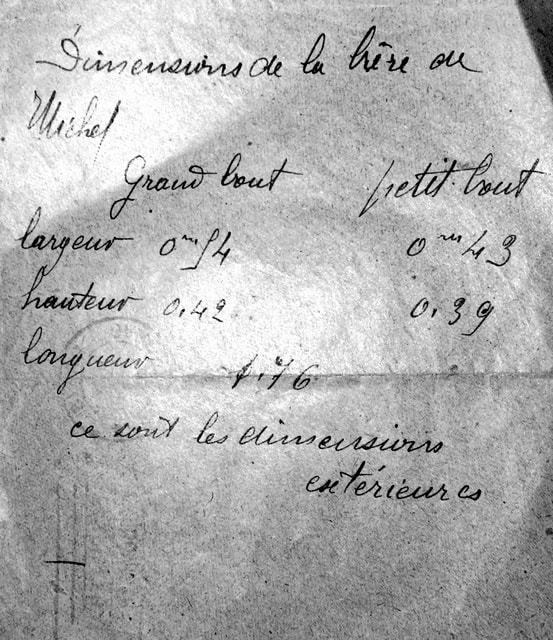 Dimensions de la bière de
Michel
Grand bout petit bout
largeur 0m54 0m43
hauteur 0.42 0.39
longueur 1.76
ce sont les dimensions
extérieures